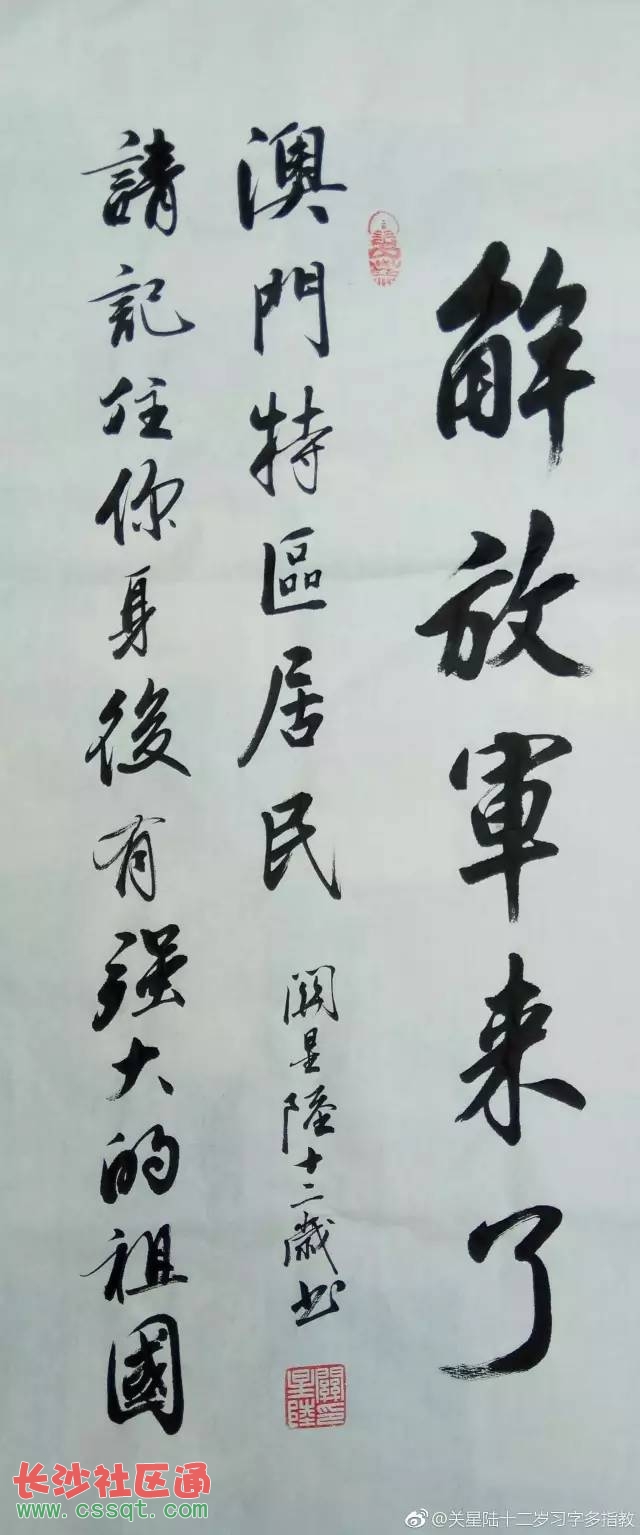 解放軍来了
澳門特區居民
請記住你身後有强大的祖國
關星陸十二歲书
關星陸印
长沙社区通
www.cssqt.com
@关星陆十二岁习字多指教